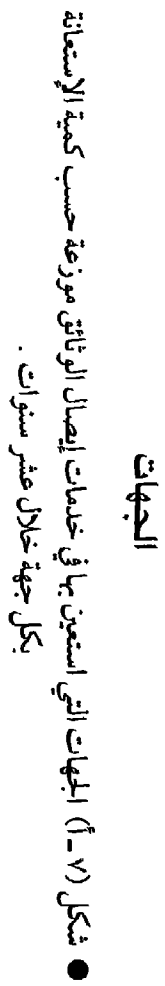 الجهات
● شكل (٧ - أ) الجهات التي استعين بها في خدمات إيصال الوثائق موزعة حسب كمية الإستعانة
بكل جهة خلال عشر سنوات .